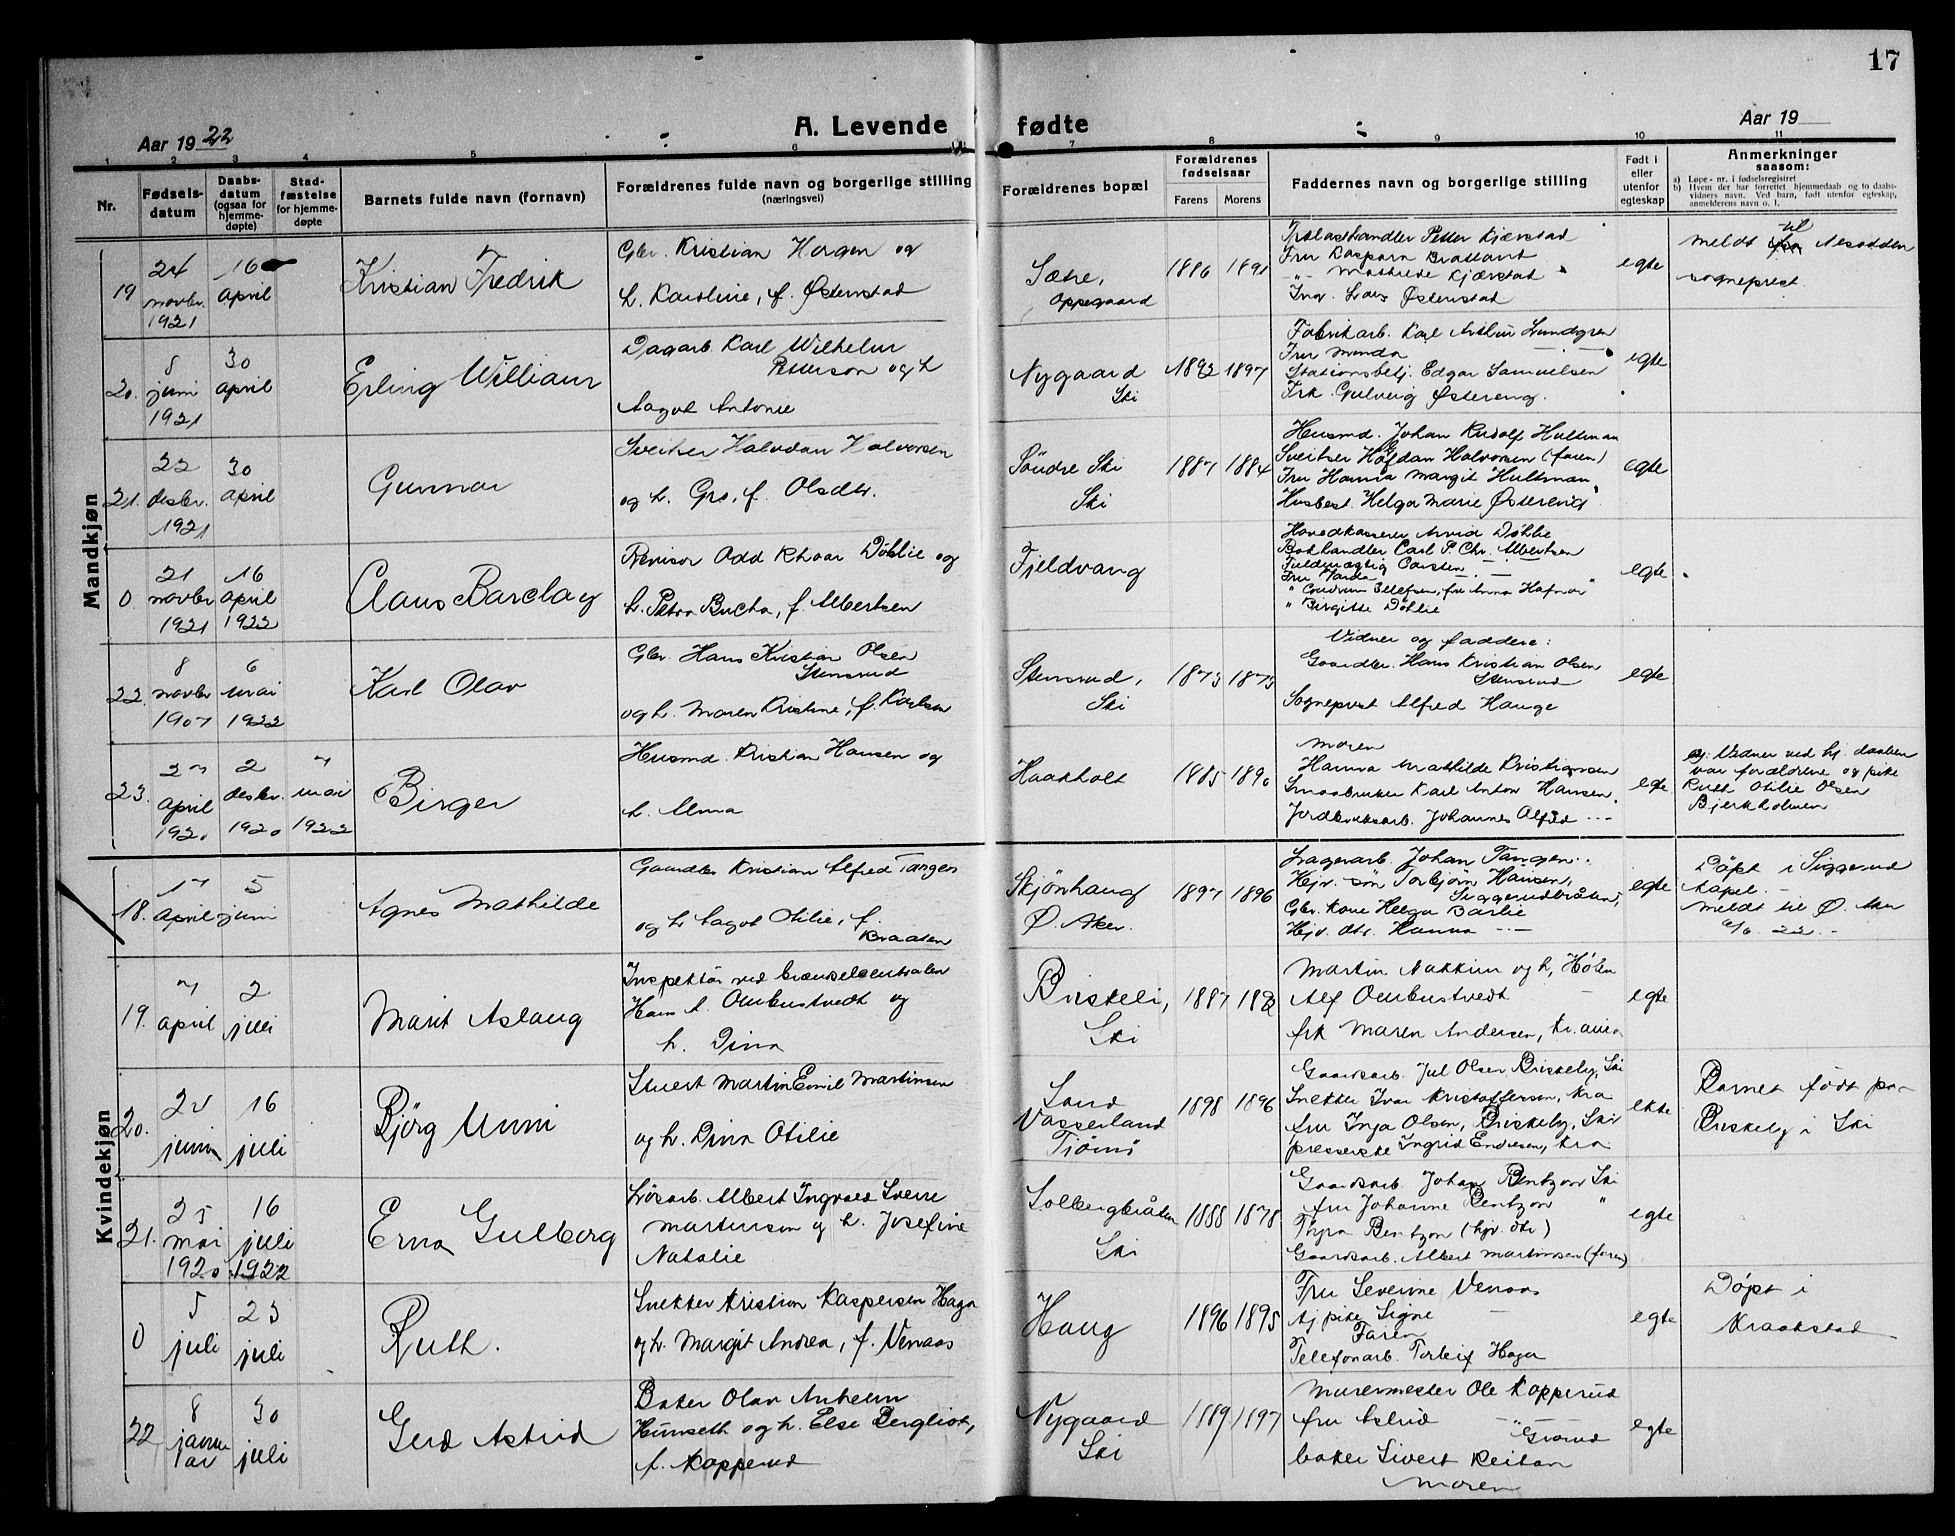 17
Aar 1922
A. Levende fødte
Aar 19
1 2 3 4 5 6 7 8 9 10 11
Nr.
Fødselsdatum
Daabsdatum (ogsaa for hjemmedøpte)
Stadfæstelse for hjemmedøpte
Barnets fulde navn (fornavn)
Forældrenes fulde navn og borgerlige stilling (næringsvei)
Forældrenes bopæl
Forældrenes fødselsaar
Farens Morens
Faddernes navn og borgerlige stilling
Født i eller utenfor egteskap
Anmerkninger saasom:
a) Løpe-nr. i fødselsregistret
b) Hvem der har forrettet hjemmedaab og to daabsvidners navn. Ved barn, født utenfor egteskap, anmelderens navn o. l.
Mandkjøn
19
24 novbr. 1921
16 april
Kristian Fredrik
Gbr. Kristian Hagen og
h. Karoline, f. Østenstad
Sætre,
Oppegaard
1886 1891
Trælasthandler Petter Kjærstad
Fru Kaspara Brattant
-"- Mathilde Kjærstad
Ing. Lars Østenstad
egte
meldt til Nesodden
sogneprest.
20.
8 juni 1921
30 april
Erling William
Dagarb. Karl Wilhelm
Petterson og h.
Aagot Antonie
Nygaard
Ski
1892 1897
Fabrikarb. Karl Arthur Lundgren
Fru Minda
Stationsbetj. Edgar Samuelsen
Frk. Gulveig Østereng.
egte
21.
22 desbr. 1921
30 april
Gunnar
Sveitser Halvdan Halvorsen
og h. Gro, f. Olsdtr.
Søndre Ski
Ski
1887 1884
Husmd. Johan Rudolf Hultman
Sveitser Halfdan Halvorsen (faren)
Fru Hanna Margit Hultman
Husbest. Helga Marie Østereng
egte
0
21 novbr 1921
16 april 1922
Claus Barclay
Revisor Odd Rhoar Døhlie og
h. Petra Bucha, f. Albertsen
Fjeldvang
Hovedkasserer Arvid Døhlie
Bokhandler Carl P. Chr. Albertsen
Fuldmægtig Carsten -"-
Fru Varda -"-
" Gudrun Ellefsen, fru Anna Hafnor
" Birgitte Døhlie
egte
22.
8 novbr 1907
6 mai 1922
Karl Olav
Gbr. Hans Kristian Olsen
Stensrud
og h. Maren Kristine, f. Karlsen
Stensrud,
Ski
1873 1873
Vidner og faddere:
Gaardbr. Hans Kristian Olsen
Stensrud
Sogneprest Alfred Hauge
egte
23.
27 april 1920
2 desbr. 1920
7 mai 1922
Birger
Husmd. Kristian Hansen og
h. Alma
Haakholt
1885 1890
Moren
Hanna Mathilde Kristiansen
Smaabruker Karl Anton Hansen
Jordbruksarb. Johannes Alfred -"-
egte
Vidner ved hj. daaben
var forældrene og pike
Ruth Otilie Olsen
Bjerkholmen
Kvindekjøn
18.
17 april
5 juni
Agnes Mathilde
Gaardbr Kristian Alfred Tangen
og h Aagot Otilie, f.
Braaten
Skjønhaug
Ø. Aker.
1897 1896
Lagerarb. Johan Tangen
Hjv. søn Torbjørn Hansen,
Siggerudbråten,
Gbr. kone Helga Barlie
Hjv. dtr. Hanna -"-
egte
Døpt i Siggerud
kapel.
Meldt til Ø. Aker
19.
7 april
2 juli
Marit Aslaug
Inspektør ved brændselcentralen
Hans A. Ombustvedt og
h. Dina
Briskeli,
Ski
1887
Martin Nakkim og h, Hølen
Alf Ombustvedt
frk Maren Andersen, Kr.ania
egte
20.
juni
16 juli
Bjørg Unni
Stuert Martin Emil Martinsen
og h. Dina Otilie
Sand
Vasserland
Tjømø
1898 1896
Gaardsarb. Jul Olsen Briskeby, Ski
Snekker Ivar Kristoffersen, Kra
fru Inga Olsen, Briskeby, Ski
presserske Ingrid Endresen, Kra
ekte
Barnet født på
Briskeby i Ski
21.
25 mai 1920
16 juli 1922
Erna Gulborg
Løsarb. Albert Ingvald Sverre
Martinsen og h. Josefine
Natalie
Solbergbråten
Ski
1888 1878
Gaardsarb. Johan Bentzon Ski
fru Johanne Bentzon "
Thyra Bentzon (hjv. dtr)
Gaardsarb. Albert Martinsen (faren)
egte
0
5 juli
23 juli
Ruth.
Snekker Kristian Kaspersen Haga
og h. Margit Andrea, f. Venaas
Haug
1896 1895
Fru Severine Venaas
Hj pike Signe -
Faren
Telefonarb. Torleif Haga
egte
Døpt i
Kraakstad
22.
8 januar
30 juli
Gerd Astrid
Baker Olav Anhelm
Hunseth og h. Else Bergliot,
f. Kopperud
Nygaard
Ski
1889 1897
Murermester Ole Kopperud
fru Astrid -"-
Grorud
baker Sivert Reitan
Moren
egte